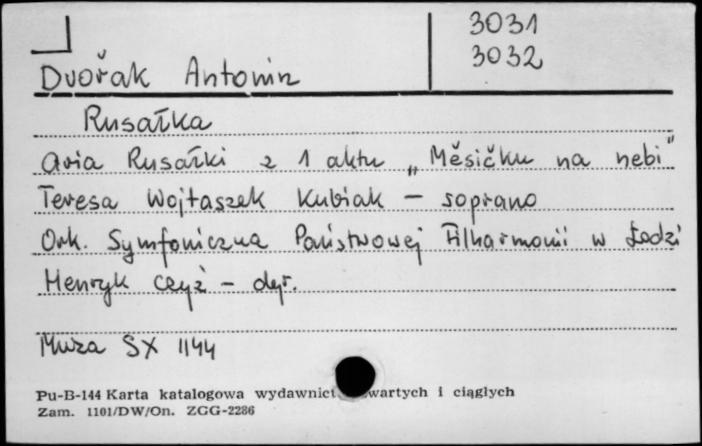 3031
3032
Dvořak Antonin
Rusałka
aria Rusałki z 1 aktu „Měsičku na nebi"
Teresa Wojtaszek Kubiak – soprano
Ork. Symfoniczna Państwowej Filharmonii w Łodzi
Henryk Czyż – dyr.
Muza SX 1144
Pu-B-144 Karta katalogowa wydawnict wartych i ciągłych
Zam. 1101/DW/On. ZGG-2286